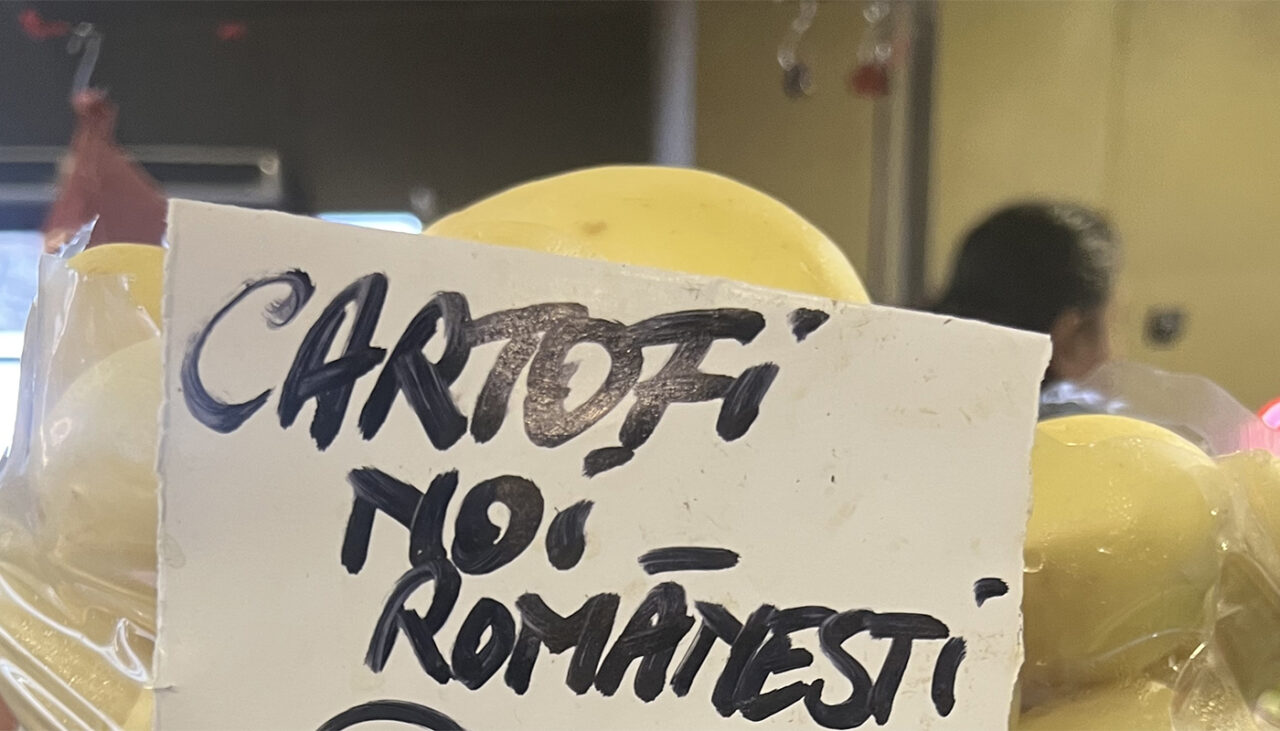 CARTOFi
NOi
ROMĀNESTi